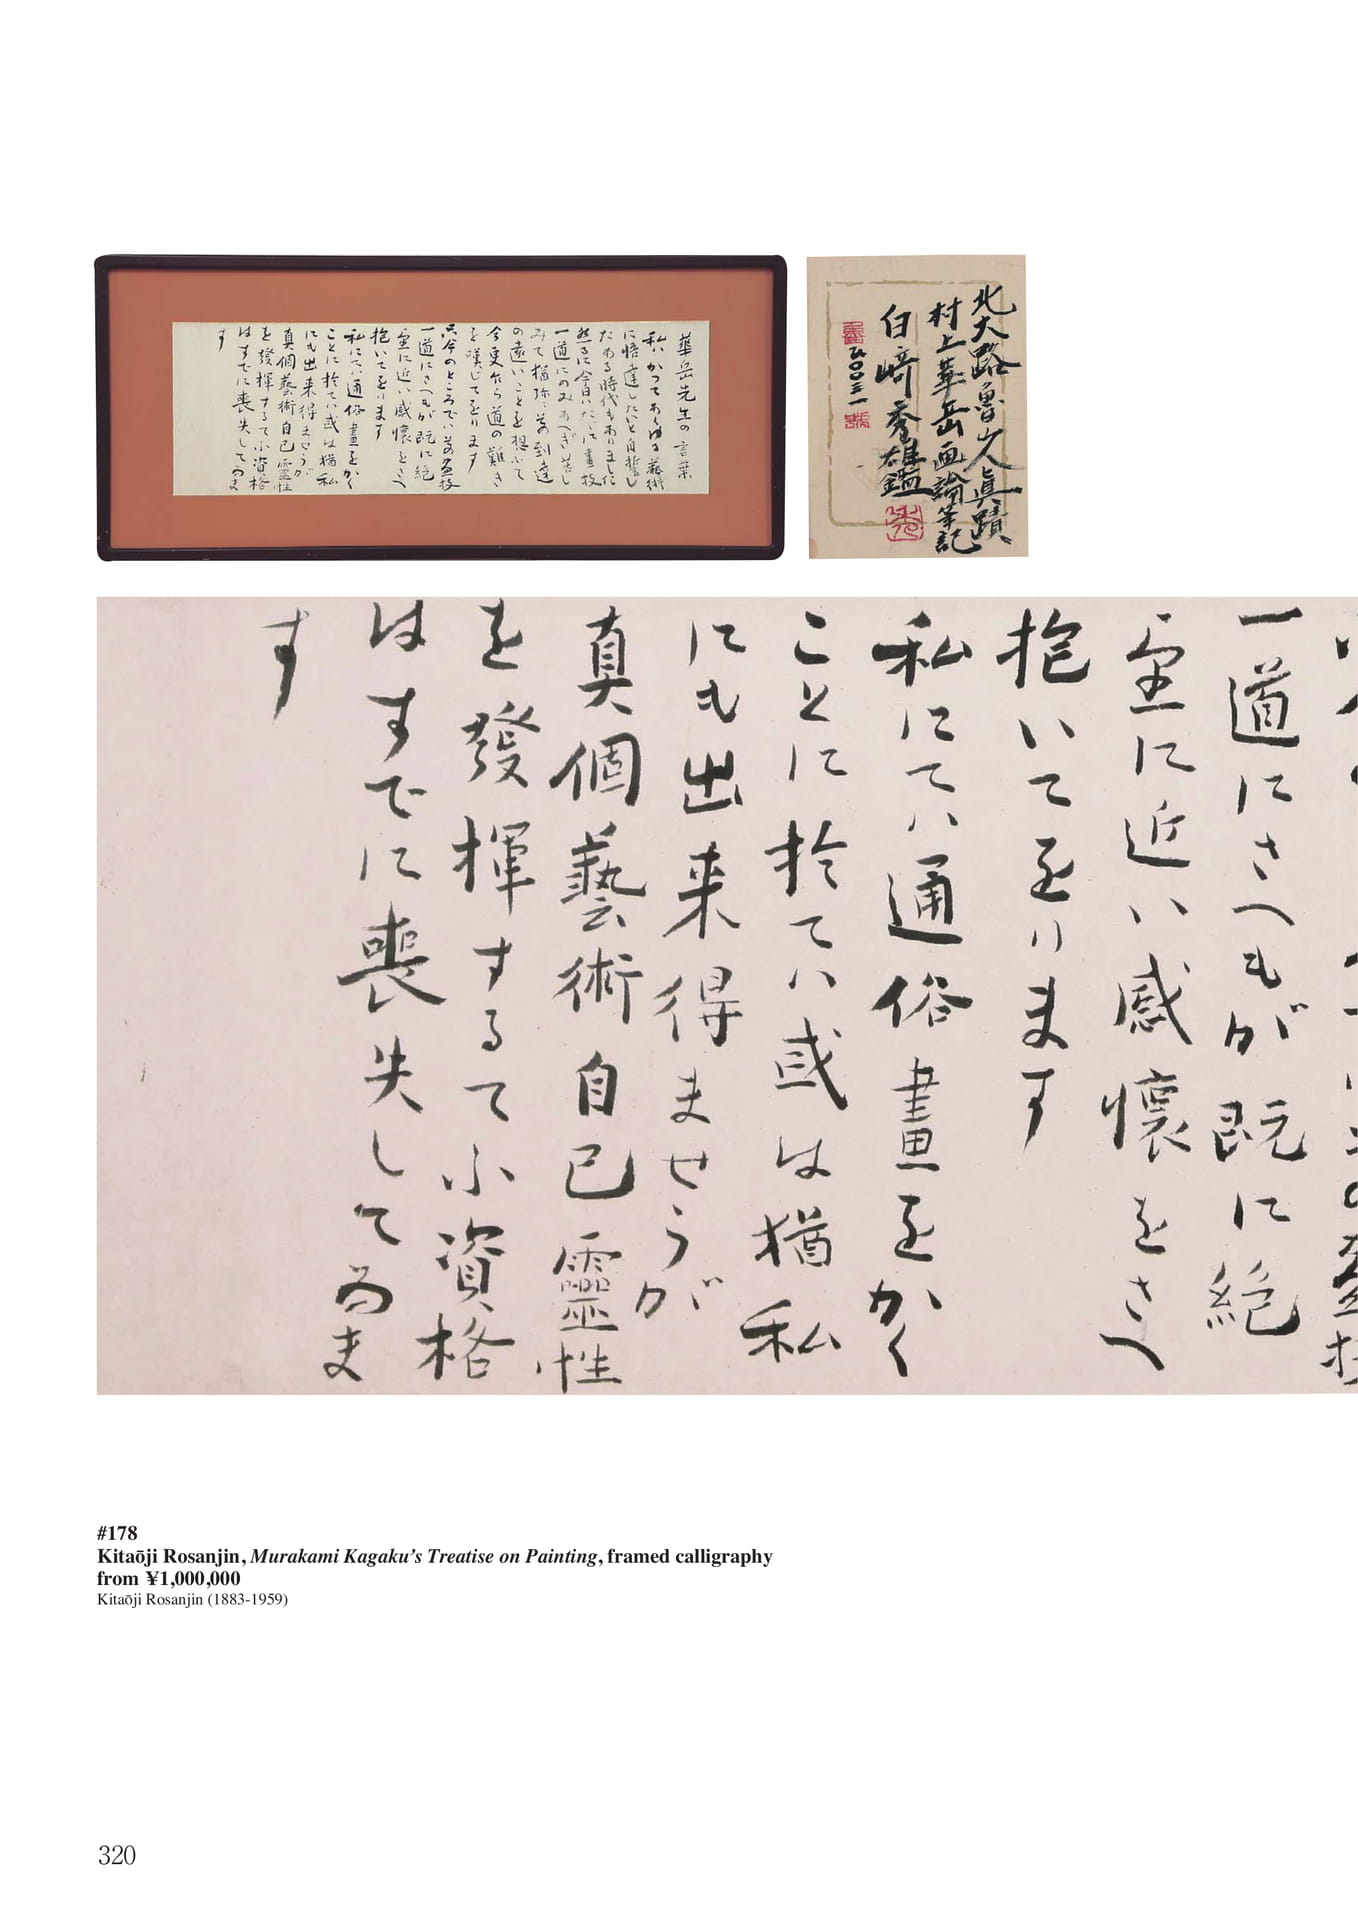 華岳先生の言葉
私ハかつてあらゆる藝術
に悟達したいと自誓し
たある時代もありました
然るに今日ハただに畫技
一道にのみあへぎ苦し
みて猶弥々其到達
の遠いことを想ふて
今更乍ら道の難き
を嘆じてをります
只今のところでハ其畫技
一道にさへもが既に絶
望に近い感懐をさへ
抱いてをります
私にてハ通俗畫をかく
ことに於てハ或は猶私
にも出来得ませうが
真個藝術自己靈性
を發揮するてふ資格
はすでに喪失してゐま
す
北大路魯山人眞蹟
村上華岳画論筆記
白﨑秀雄鑑
一道にさへもが既に絶
望に近い感懐をさへ
抱いてをります
私にてハ通俗畫をかく
ことに於てハ或は猶私
にも出来得ませうが
真個藝術自己靈性
を發揮するてふ資格
はすでに喪失してゐま
す
#178
Kitaōji Rosanjin, Murakami Kagaku’s Treatise on Painting, framed calligraphy
from ¥1,000,000
Kitaōji Rosanjin (1883-1959)
320